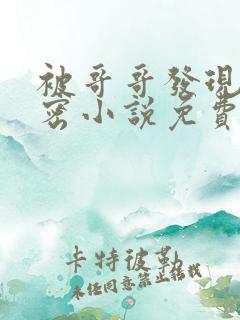 被哥哥發現
密小說免費
卡特彼勒
未经同意禁止转载